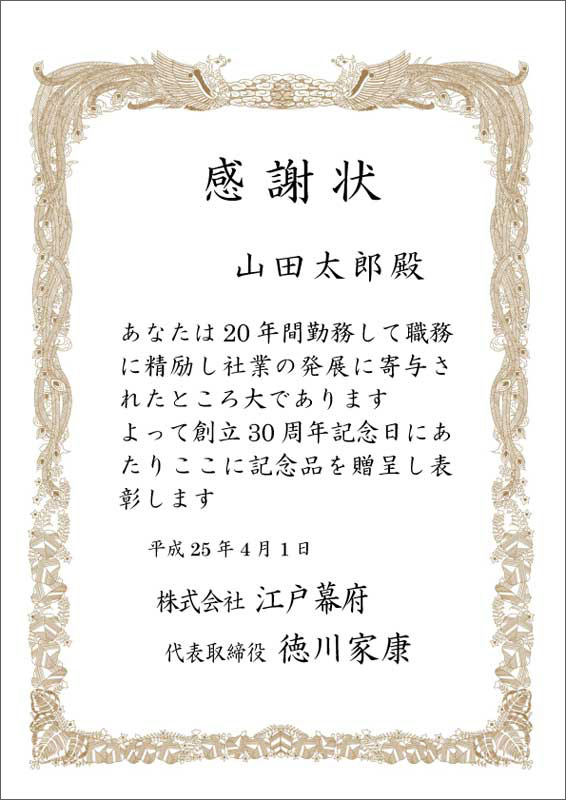 感謝状
山田太郎殿
あなたは20年間勤務して職務
に精励し社業の発展に寄与さ
れたところ大であります
よって創立30周年記念日にあ
たりここに記念品を贈呈し表
彰します
平成25年4月1日
株式会社 江戸幕府
代表取締役 徳川家康